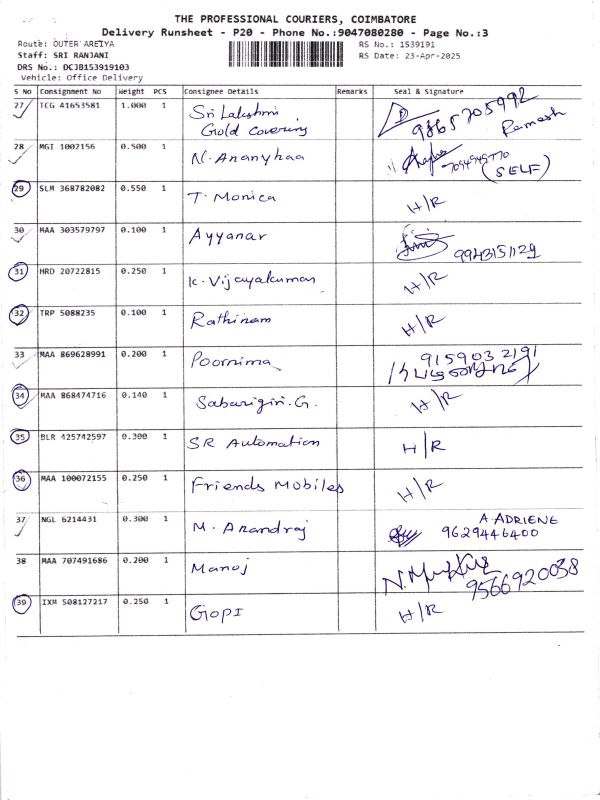 THE PROFESSIONAL COURIERS, COIMBATORE
Delivery Runsheet - P20 - Phone No.:9047080280 - Page No.:3
Route: OUTER AREIYA
RS No.: 1539191
Staff: SRI RANJANI
RS Date: 23-Apr-2025
DRS No.: DCJB153919103
Vehicle: Office Delivery
S No Consignment No Weight PCS Consignee Details Remarks Seal & Signature
27 TCG 41653581 1.000 1 Sri Lakshmi Gold Covering 9865705992 Ramesh
28 MGI 1002156 0.500 1 N. Ananyhaa 7094949770 (SELF)
29 SLM 368782082 0.550 1 T. Monica H/R
30 MAA 303579797 0.100 1 Ayyanar 9943151129
31 HRD 20722815 0.250 1 K. Vijayakumar H/R
32 TRP 5088235 0.100 1 Rathinam H/R
33 MAA 869628991 0.200 1 Poornima 9159032191
34 MAA 868474716 0.140 1 Sabarigiri.G. H/R
35 BLR 425742597 0.300 1 SR Automation H/R
36 MAA 100072155 0.250 1 Friends Mobiles H/R
37 NGL 6214431 0.300 1 M. Anandraj A. ADRIENE 9629446400
38 MAA 707491686 0.200 1 Manoj 9566920038
39 IXM 508127217 0.250 1 GOPI H/R